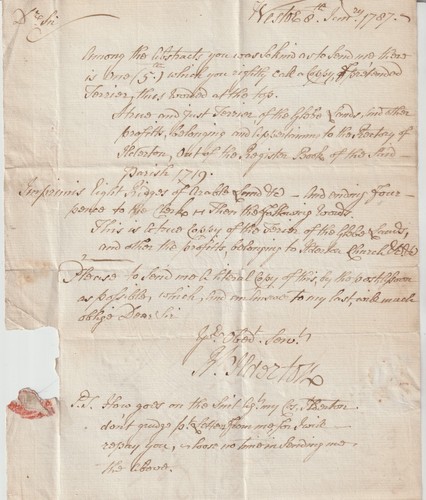 Westoe 8th Jany 1787.
Dr Sir
Among the Abstracts you was so kind as to send me there
is One (5th) which you rightly call a Copy, of
Terrier, thus worded at the top.
A true and just Terrier, of the Glebe Lands, and other
profits, belonging and appertaining to the Rectory of
Ilderton, out of the Register Book of the said
Parish 1719.
Imprimis Eight Ridges of Arable Land &c — And ending four
pence to the Clerk &c Then the following words.
This is a true Copy of the Terrier of the Glebe Lands,
and other the profits, belonging to Ilderton Church &c
Please to send me a literal Copy of this, by the
as possible, which, and to my last, will much
oblige Dear Sir
Yr Obedt Servt
Ilderton
P.S. How goes on the Suit
don't grudge Letters from me for I will
repay you, & lose no time in sending me
the above.